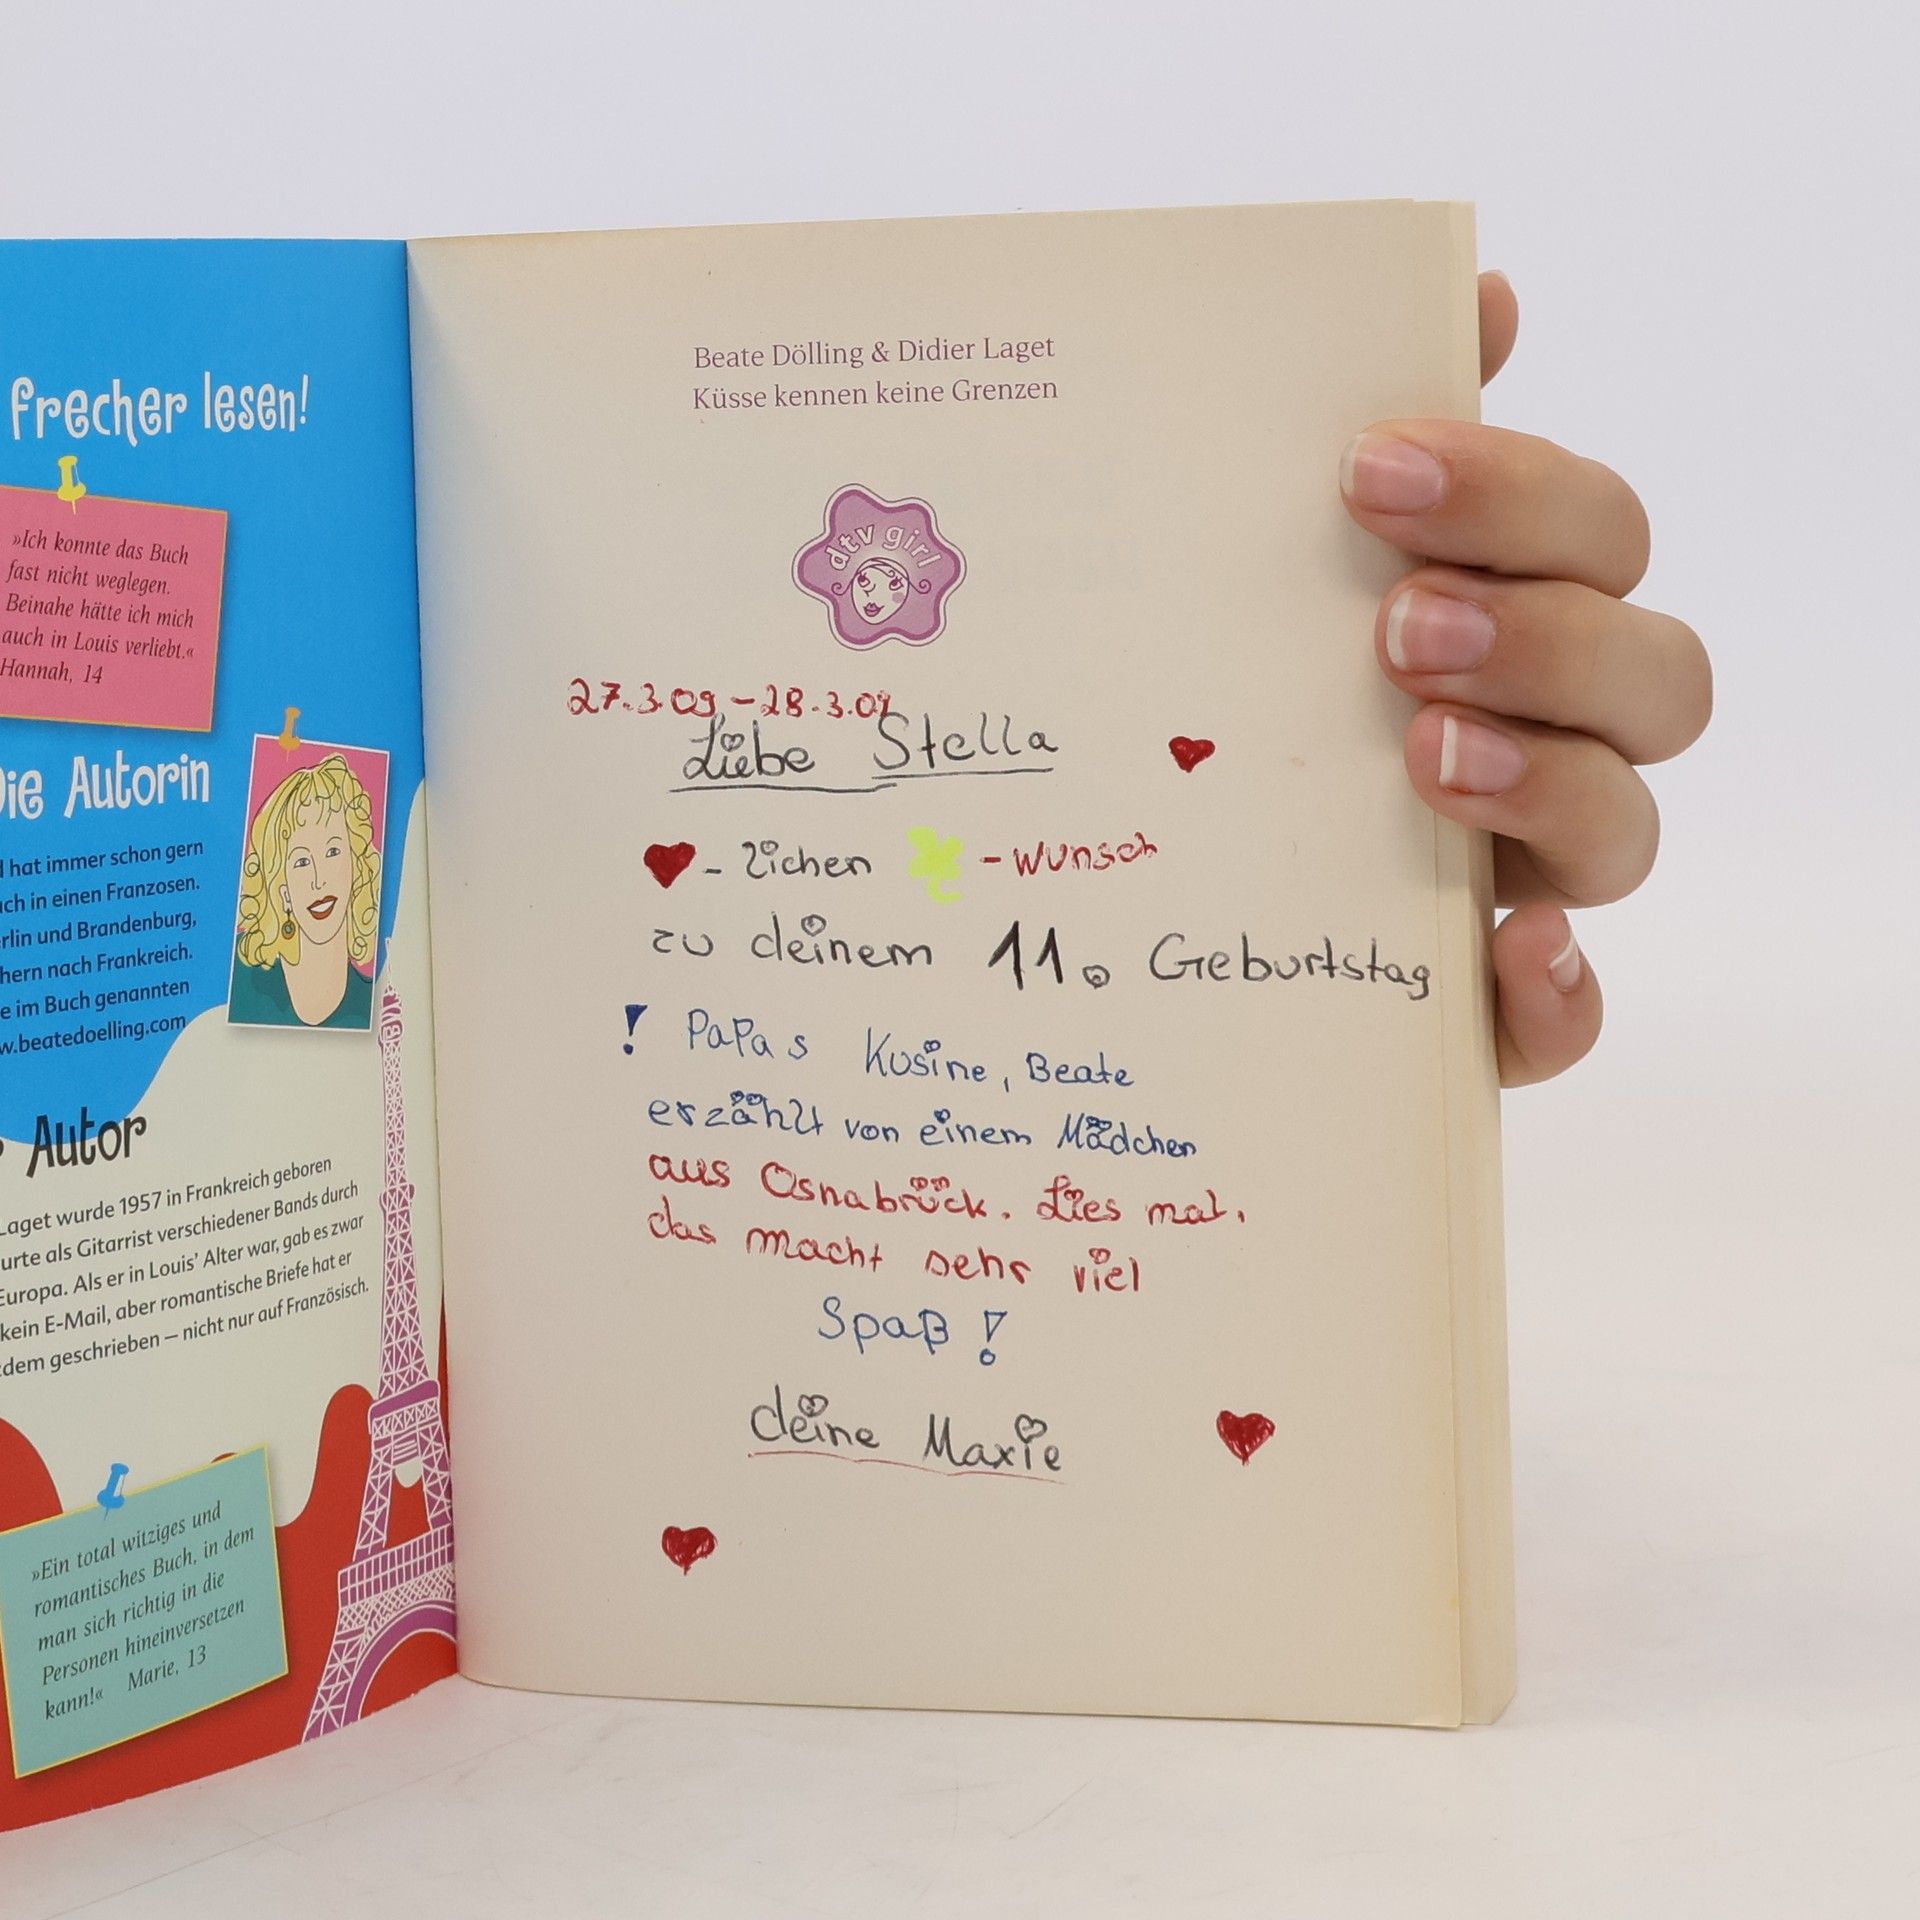 frecher lesen!
»Ich konnte das Buch
fast nicht weglegen.
Beinahe hätte ich mich
auch in Louis verliebt.«
Hannah, 14
Die Autorin
hat immer schon gern
in einen Franzosen.
und Brandenburg,
nach Frankreich.
im Buch genannten
w.beatedoelling.com
Autor
Laget wurde 1957 in Frankreich geboren
als Gitarrist verschiedener Bands durch
Europa. Als er in Louis' Alter war, gab es zwar
kein E-Mail, aber romantische Briefe hat er
geschrieben – nicht nur auf Französisch.
»Ein total witziges und
romantisches Buch, in dem
man sich richtig in die
Personen hineinversetzen
kann!« Marie, 13
Beate Dölling & Didier Laget
Küsse kennen keine Grenzen
dtv girl
27.3.09 – 28.3.09
Liebe Stella
- lichen - wunsch
zu deinem 11. Geburtstag
! Papas Kusine, Beate
erzählt von einem Mädchen
aus Osnabrück. Lies mal,
das macht sehr viel
Spaß !
deine Maxie